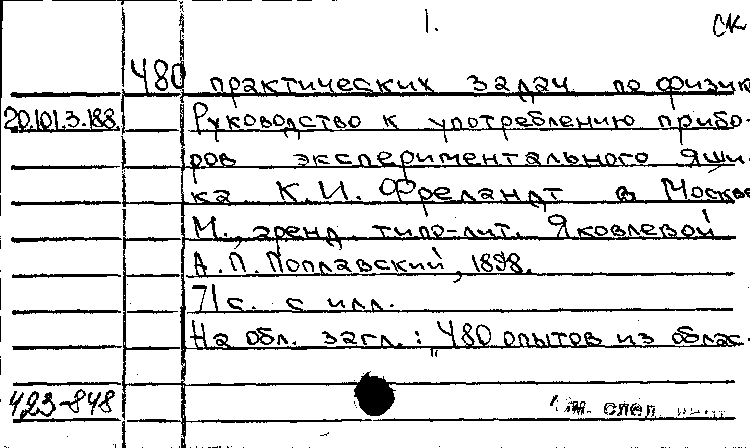 1.
СК
480 практических задач по физик
20.101.3.188. Руководство к употреблению прибо-
ров экспериментального ящи-
ка К.И. Фреландт в Москве
М., аренд. типо-лит. Яковлевой
А.П. Поплавский, 1898.
71 с. с илл.
На обл. загл.: "480 опытов из облас.
423-848
см. след.